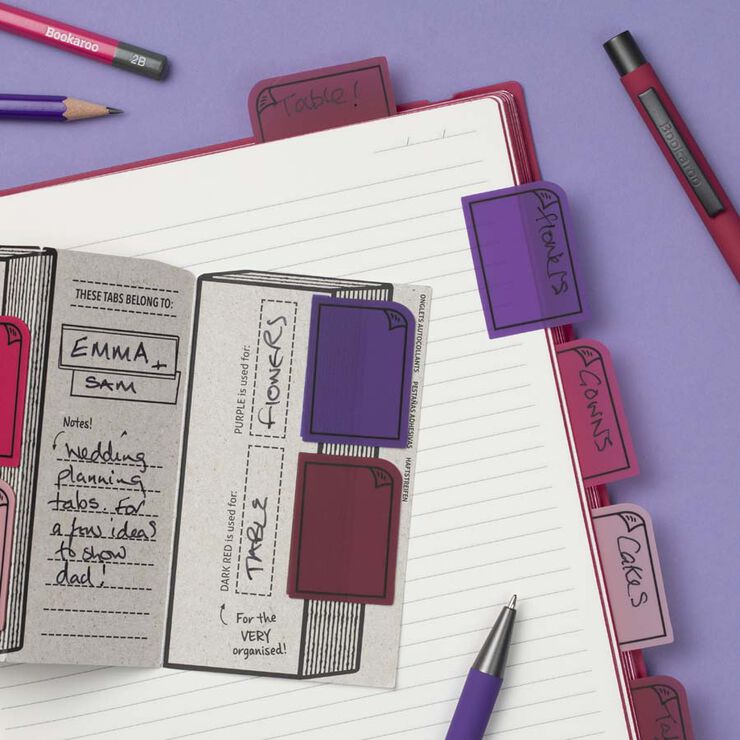 Bookaroo
2B
Table!
Bookaroo
flowers
Gowns
Cakes
THESE TABS BELONG TO:
EMMA +
SAM
Notes!
wedding
planning
tabs. For
a few ideas
to show
dad!
PURPLE is used for:
flOWERS
DARK RED is used for:
TABLE
For the
VERY
organised!
ONGLETS AUTOCOLLANTS PESTAÑAS ADHESIVAS HAFTSTREIFEN